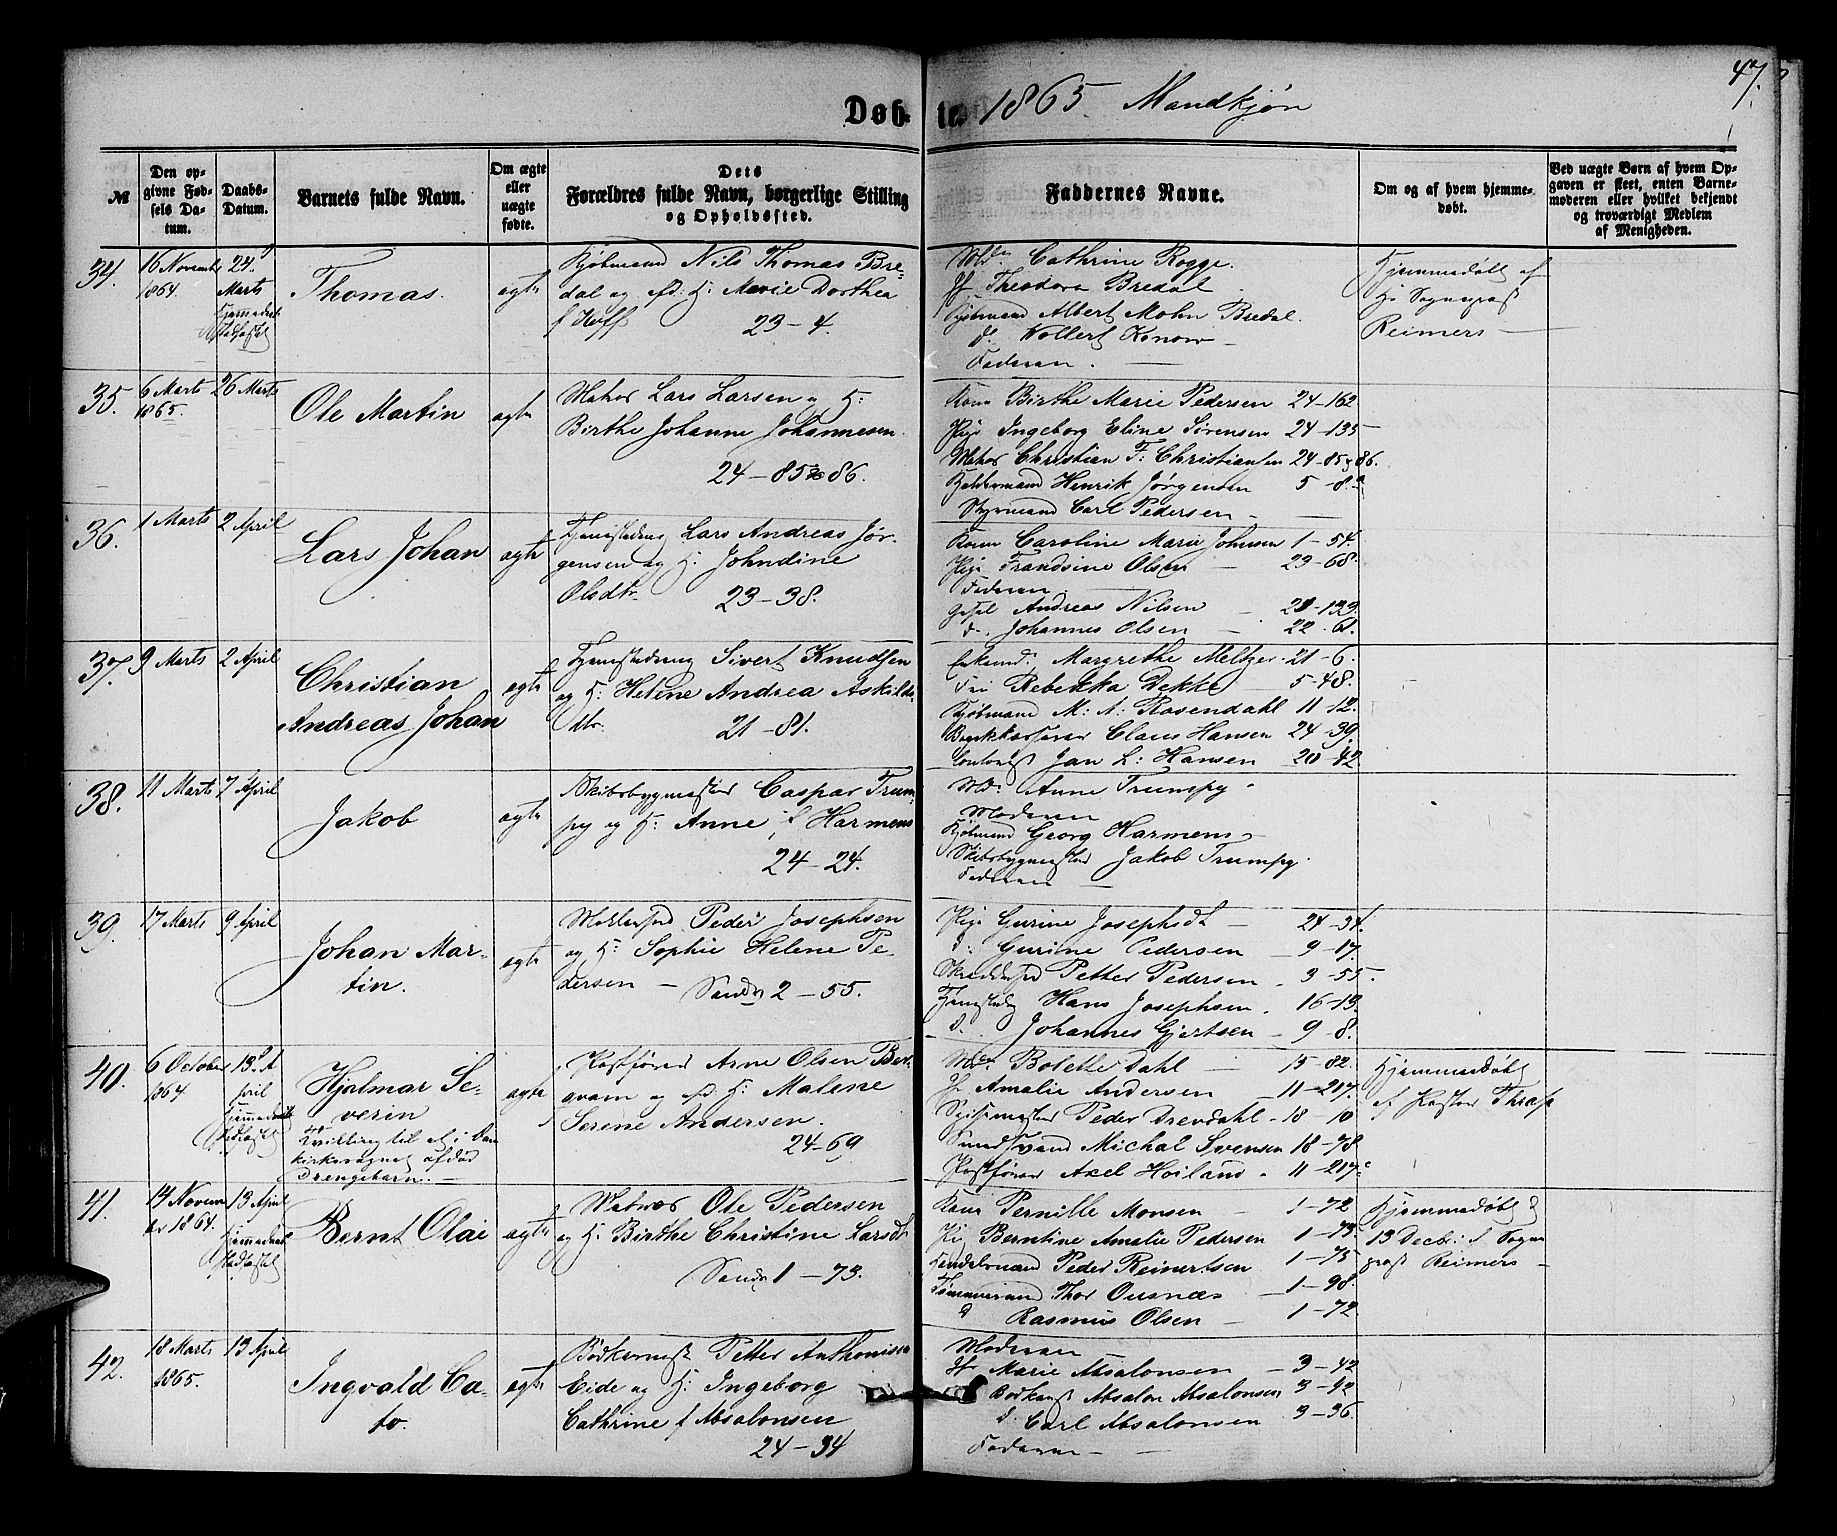 Døbte 1865. Mandkjøn
47.
№
Den op-
givne Fød-
sels Da-
tum.
Daabs-
Datum.
Barnets fulde Navn.
Om ægte
eller
uægte
fødte.
Dets
Forældres fulde Navn, borgerlige Stilling
og Opholdssted.
Faddernes Navne.
Om og af hvem hjemme-
døbt.
Ved uægte Børn af hvem Op-
gaven er skeet, enten Barne-
moderen eller hvilket bekjendt
og troværdigt Medlem
af Menigheden.
34.
16 Novemb
1864.
24
Marts
Hjemmedaab
Stadfæstet
Thomas.
ægte
Kjøbmand Nils Thomas Bre-
dal og H: Marie Dorthea
f Hoff
23 - 4.
Md. Cathrine Rogge.
Jf Theodora Bredal
Kjøbmand Albert Mohn Bredal.
d. Wollert Konow -
Faderen. -
Hjemmedøbt af
Hr Sognepræst
Reimers -
35.
6 Marts
1865.
26 Marts
Ole Martin
ægte
Matros Lars Larsen og H:
Birthe Johanne Johannesen.
24 - 85 & 86.
Kone Birthe Marie Pedersen 24-162
Pige Ingeborg Eline Sørensen 24-135
Matros Christian F: Christiansen 24-85 & 86.
Henrik Jørgensen 5-8
Styrmand Carl Pedersen -
36.
1 Marts
2 April
Lars Johan
ægte
Lars Andreas Jør-
gensen og H: Johndine
Olsdtr.
23-38.
Kone Caroline Marie Johnsen 1-54.
Pige Frandsine Olsen - 23-68.
Faderen
Andreas Nilsen
d. Johannes Olsen - 22-61.
37.
9 Marts
2 April
Christian
Andreas Johan
ægte
Sivert Knudsen
og H: Helene Andrea Askilds-
dtr.
21-81.
Margrethe Meltzer 21-6.
Rebekka Dekke 5-48.
Kjøbmand M: A: Rosendahl 11-12.
Claus Hansen 24-39.
Jan L: Hansen 20-42
38.
11 Marts
7 April
Jakob
ægte
Skibsbygmester Caspar Trum-
py og H: Anne f Harmens
24-24.
Md: Anne Trumpy
Moderen
Kjøbmand Georg Harmens
Skibsbygmester Jakob Trumpy.
Faderen -
39.
17 Marts
9 April
Johan Mar-
tin.
ægte
Peder Josephsen
og H: Sophie Helene Pe-
dersen - Sandv 2-55.
Pige Gurine Josephsdt - 24-34.
d: Gurine Pedersen - 9-17.
Petter Pedersen - 3-55.
Hans Josephsen. 16-13.
d. Johannes Gjertsen - 9-8.
40.
6 October
1864
13 A
pril
Hjemmedaab
Stadfæstet
Hjalmar Se-
verin
Tvilling til et i Dom
kirkesognet afdød
Drengebarn. -
ægte
Postfører Arne Olsen Ber-
qvam og H: Malene
Serine Andersen.
24-69
Md. Bolette Dahl - 15-82.
Jf Amalie Andersen - 11-217.
Peder Drevdahl - 18-10
Michal Svensen 18-78
Postfører Axel Hoiland - 11-217
Hjemmedøbt
af Pastor
41.
14 Novem
br 1864.
13 April
Hjemmedaab
Stadfæstet
Bernt Olai
ægte
Matros Ole Pedersen
og H: Birthe Christine Larsdt
Sandv 1 - 73.
Kone Pernille Monsen - 1-72
Pige Berntine Amalie Pedersen 1-73.
Peder Reinertsen 1-73
Tømmermand Thor Ousnæs - 1-98.
d Rasmus Olsen - 1-72
Hjemmedøbt d
13 Decb: af Sogne
præst Reimers -
42.
18 Marts
1865.
13 April
Ingvald Ca-
to.
ægte
Petter Anthonisen
Eide og H: Ingeborg
Cathrine f Absalonsen
24-34
Moderen -
Jf Marie Absalonsen - 3-42
Absalon Absalonsen 3-92
d. Carl Absalonsen - 3-36.
Faderen -